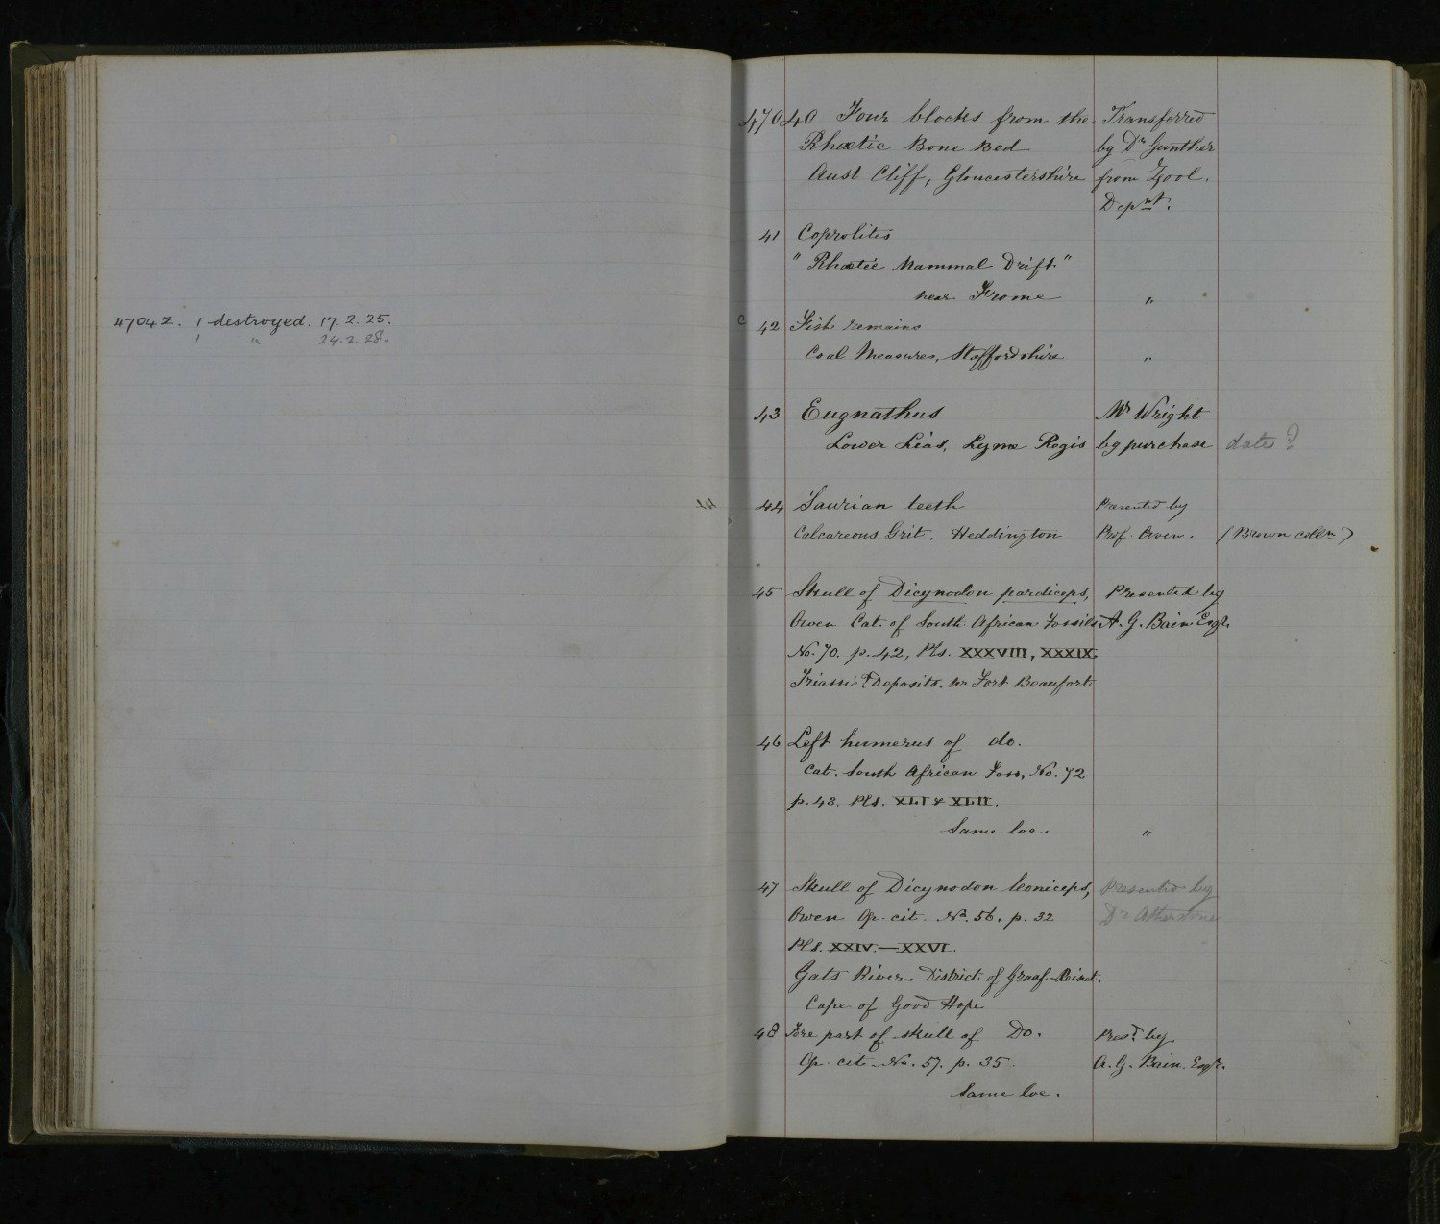 47042. 1 destroyed. 17.2.25.
1 " 24.2.28.
47040 Four blocks from the Transferred
Rhætic Bone Bed by Dr Gunther
Aust Cliff, Gloucestershire from Zool.
Depnt.
41 Coprolites
" Rhætic Mammal Drift "
near Frome "
c 42 Fish remains
Coal Measures, Staffordshire "
43 Eugnathus Mr Wright
Lower Lias, Lyme Regis by purchase date?
44 Saurian teeth Presented by
Calcareous Grit. Heddington Prof. Owen. (Brown colln)
45 Skull of Dicynodon pardiceps, Presented by
Owen Cat. of South African Fossils A. G. Bain Esqr.
No. 70. p. 42, Pls. XXXVIII, XXXIX.
Triassic? Deposits. nr Fort Beaufort.
46 Left humerus of do.
Cat. South African Foss, No. 72
p. 43. Pls. XLI & XLII.
Same loc. "
47 Skull of Dicynodon leoniceps, Presented by
Owen Op. cit. No. 56. p. 32 Dr Atherstone
Pls. XXIV.—XXVI.
Gats River. District of Graaf-Reinet.
Cape of Good Hope
48 Fore part of skull of Do. Presd. by
Op. cit. No. 57. p. 35. A. G. Bain. Esqr.
Same loc.